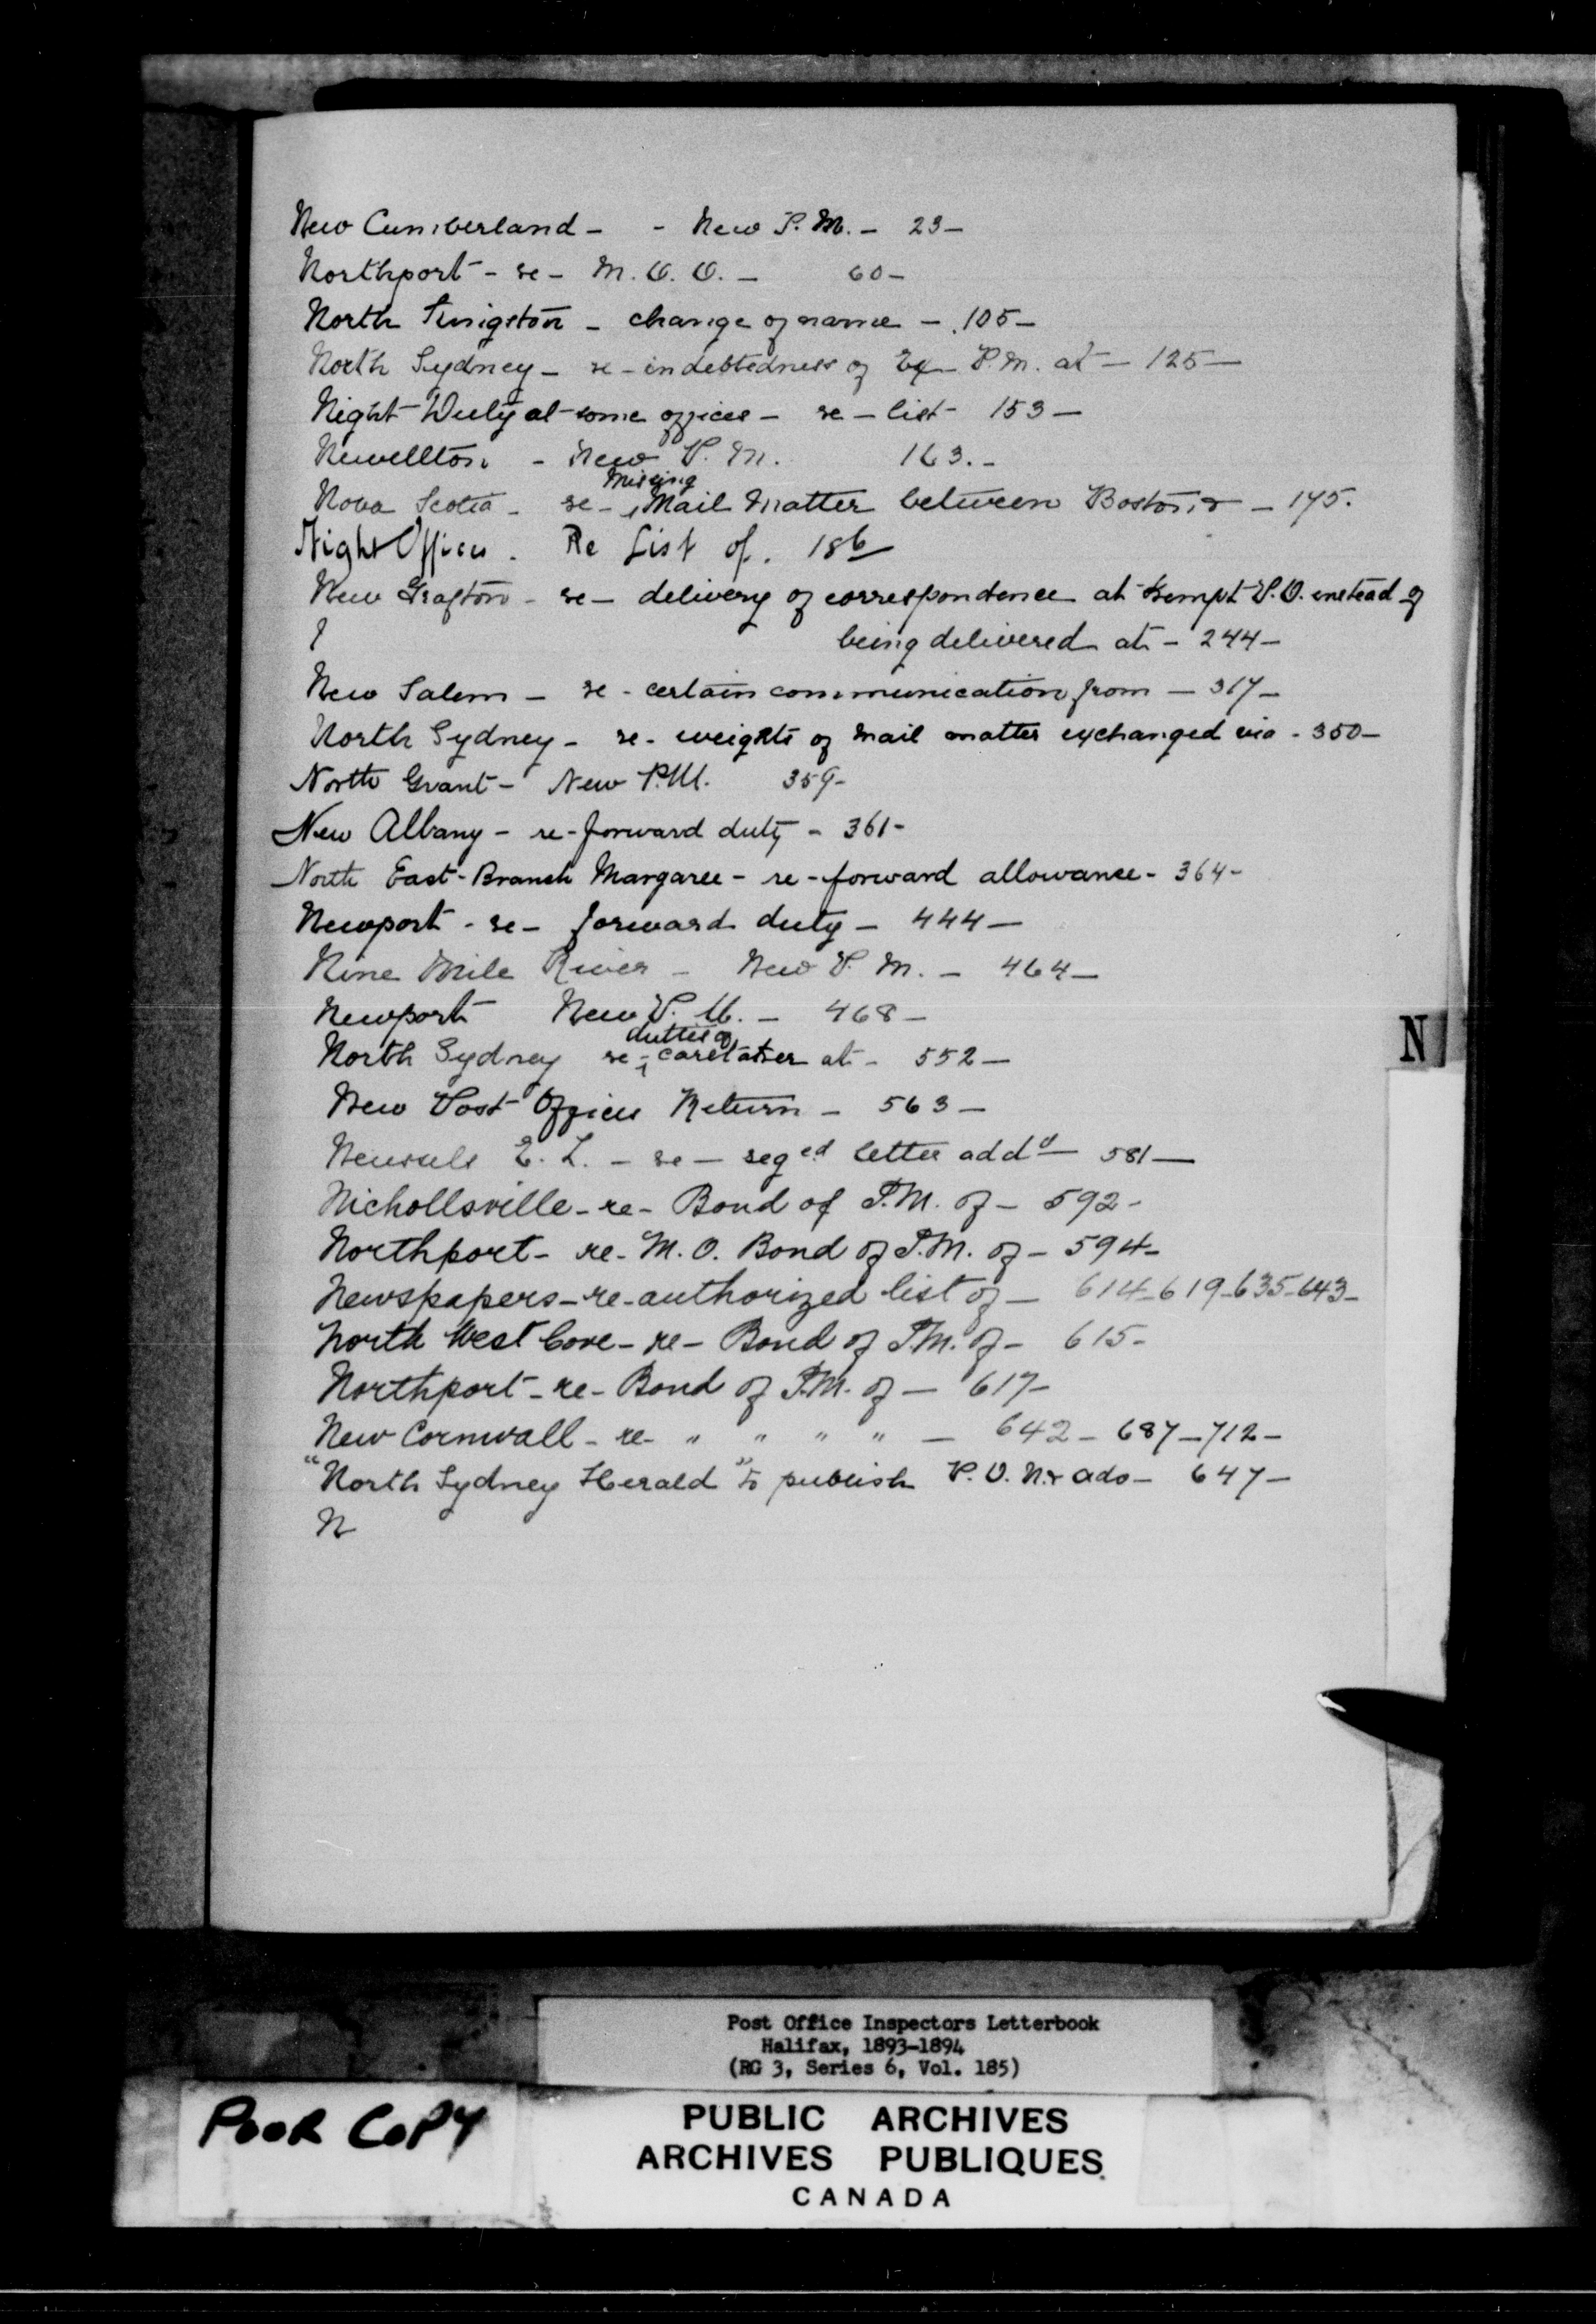 New Cumberland - - New P. M. - 23 -
Northport - re - M. O. O. - 60 -
North Kingston - change of name - 105 -
North Sydney - re - indebtedness of Ex P.M. at - 125 -
Night Duty at some offices - re - list - 153 -
Newellton - New P. M. 163. -
missing
Nova Scotia - re - Mail Matter between Boston & - 175.
Night Offices. Re List of. 186
New Grafton - re - delivery of correspondence at Kempt P.O. instead of
being delivered at - 244 -
New Salem - re - certain communication from - 317 -
North Sydney - re - weights of mail matter exchanged via - 350 -
North Grant - New P.M. 359 -
New Albany - re - forward duty - 361 -
North East Branch Margaree - re - forward allowance - 364 -
Newport - re - forward duty - 444 -
Nine Mile River - New P. M. - 464 -
Newport New P. M. - 468 -
duties of
North Sydney re - caretaker at - 552 -
New Post Offices Return - 563 -
E. L. - re - reged letter addd - 581 -
Nichollsville - re - Bond of P.M. of - 592 -
Northport - re - M. O. Bond of P.M. of - 594 -
Newspapers - re - authorized list of - 614 - 619 - 635 - 643 -
North West Cove - re - Bond of P.M. of - 615 -
Northport - re - Bond of P.M. of - 617 -
New Cornwall - re - " " " " - 642 - 687 - 712 -
"North Sydney Herald" to publish P. O. N. & ads - 647 -
N
N
Post Office Inspectors Letterbook
Halifax, 1893-1894
(RG 3, Series 6, Vol. 185)
POOR COPY
PUBLIC ARCHIVES
ARCHIVES PUBLIQUES
CANADA